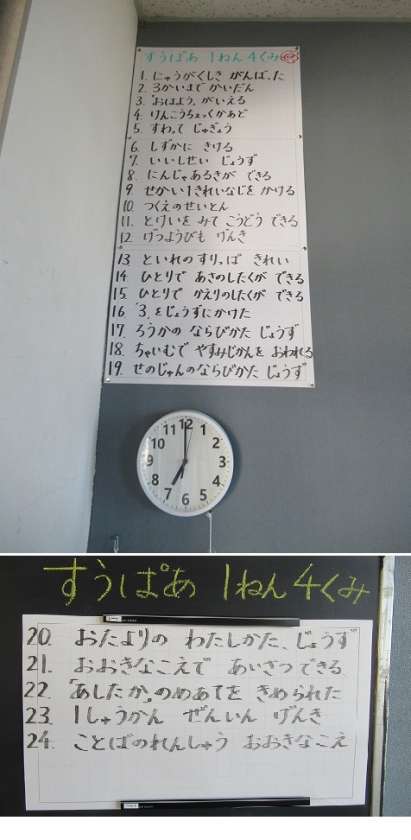 すうぱあ 1ねん4くみ
1. にゅうがくしき がんばった
2. 3かいまで かいだん
3. "おはよう"がいえる
4. けんこうちぇっくかあど
5. すわって じゅぎょう
6. しずかに きける
7. いいしせい じょうず
8. にんじゃあるきが できる
9. せかい1きれいなじを かける
10. つくえのせいとん
11. とけいを みて こうどう できる
12. げつようびも げんき
13 といれの すりっぱ きれい
14 ひとりで あさのしたくが できる
15 ひとりで かえりのしたくが できる
16 "3"をじょうずにかけた
17. ろうかの ならびかた じょうず
18. ちゃいむで やすみじかんを おわれる
19. せのじゅんのならびかた じょうず
12
1
2
3
4
5
6
7
8
9
10
11
すうぱあ 1ねん4くみ
20. おたよりの わたしかた、じょうず
21. おおきなこえで あいさつ できる
22. 「あしたか」のめあてを きめられた
23. 1しゅうかん ぜんいん げんき
24. ことばのれんしゅう おおきなこえ